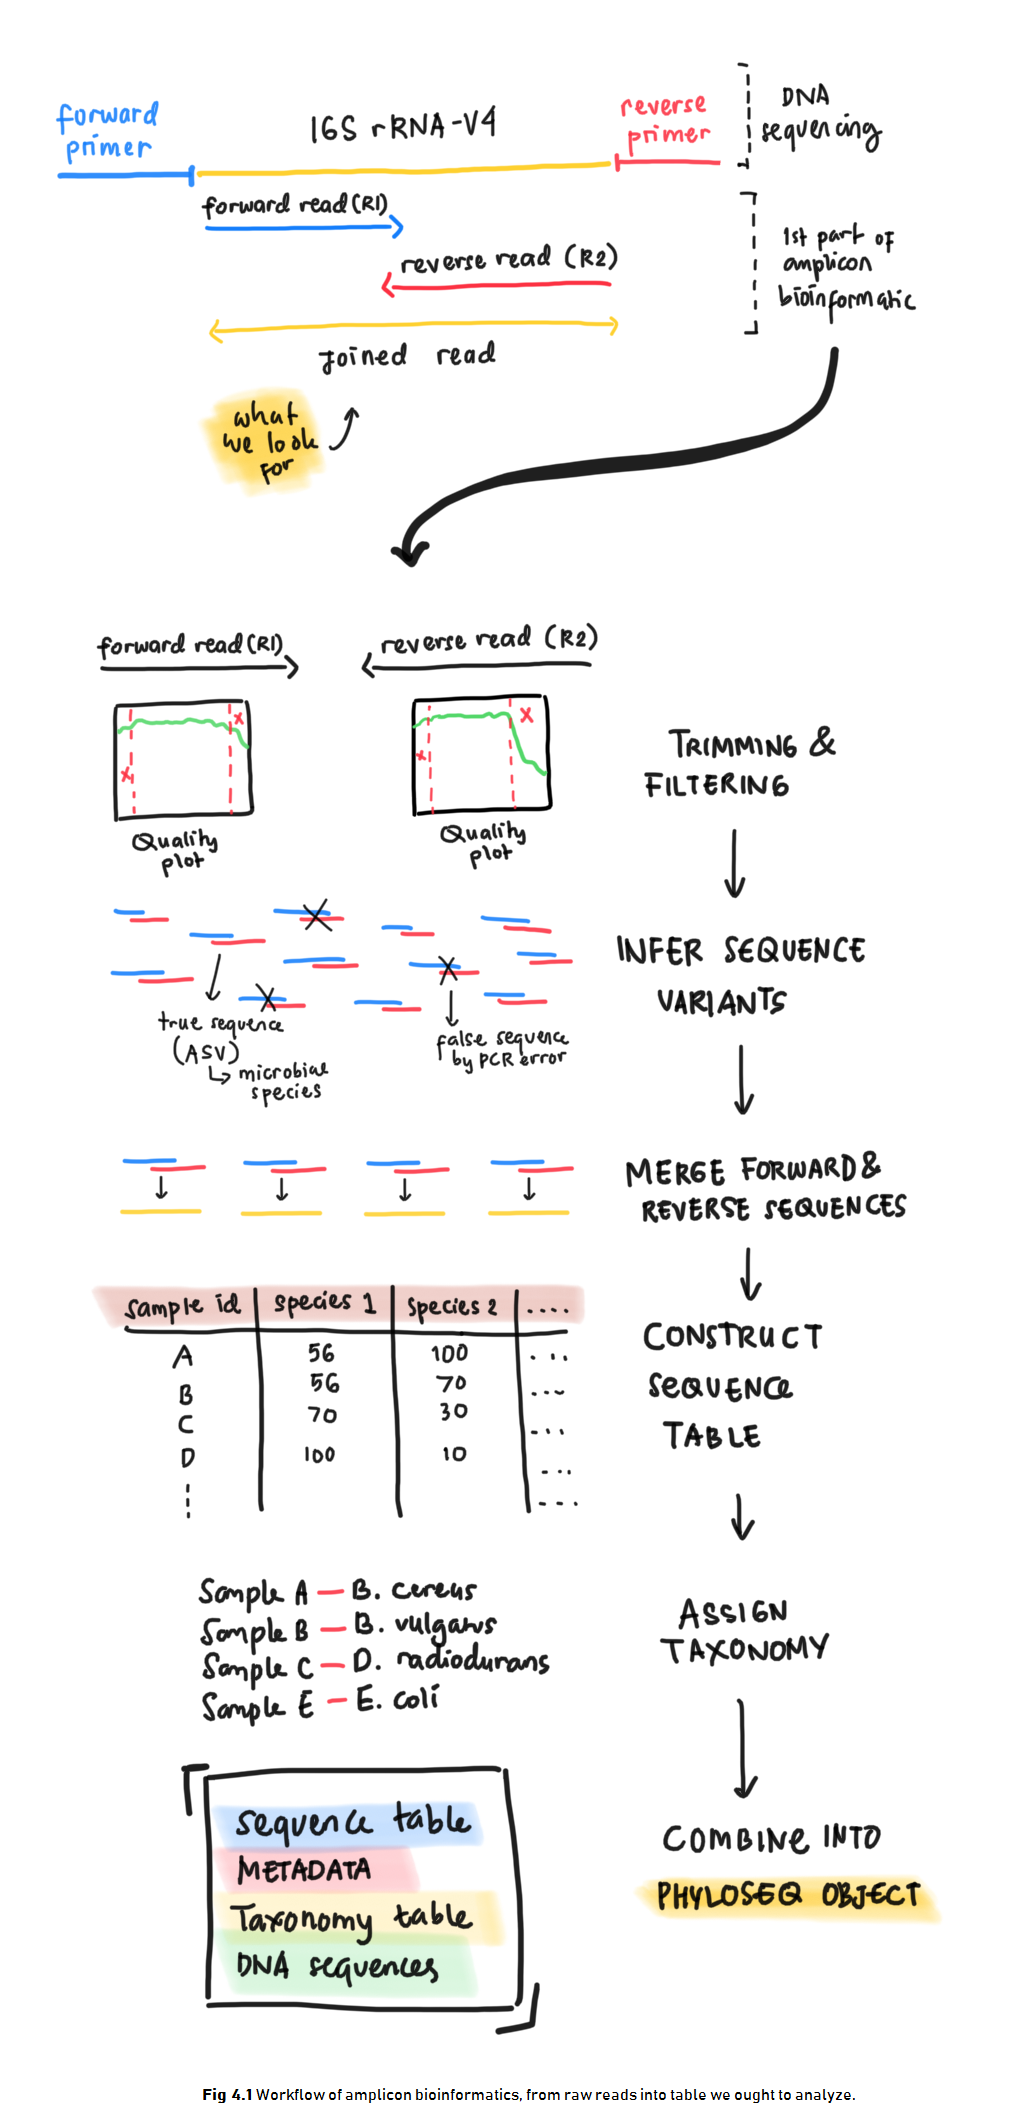 forward
primer
16S rRNA-V4
reverse
primer
DNA
sequencing
forward read (R1)
reverse read (R2)
Joined read
1st part of
amplicon
bioinformatic
what
we look
for
forward read (R1)
reverse read (R2)
x
x
x
x
Quality
plot
Quality
plot
TRIMMING &
FILTERING
true sequence
(ASV)
microbial
species
false sequence
by PCR error
INFER SEQUENCE
VARIANTS
MERGE FORWARD &
REVERSE SEQUENCES
sample id species 1 species 2 ....
A 56 100 ...
B 56 70 ...
C 70 30 ...
D 100 10 ...
...
CONSTRUCT
SEQUENCE
TABLE
Sample A — B. cereus
Sample B — B. vulgatus
Sample C — D. radiodurans
Sample E — E. coli
ASSIGN
TAXONOMY
sequence table
METADATA
Taxonomy table
DNA sequences
COMBINE INTO
PHYLOSEQ OBJECT
Fig 4.1 Workflow of amplicon bioinformatics, from raw reads into table we ought to analyze.